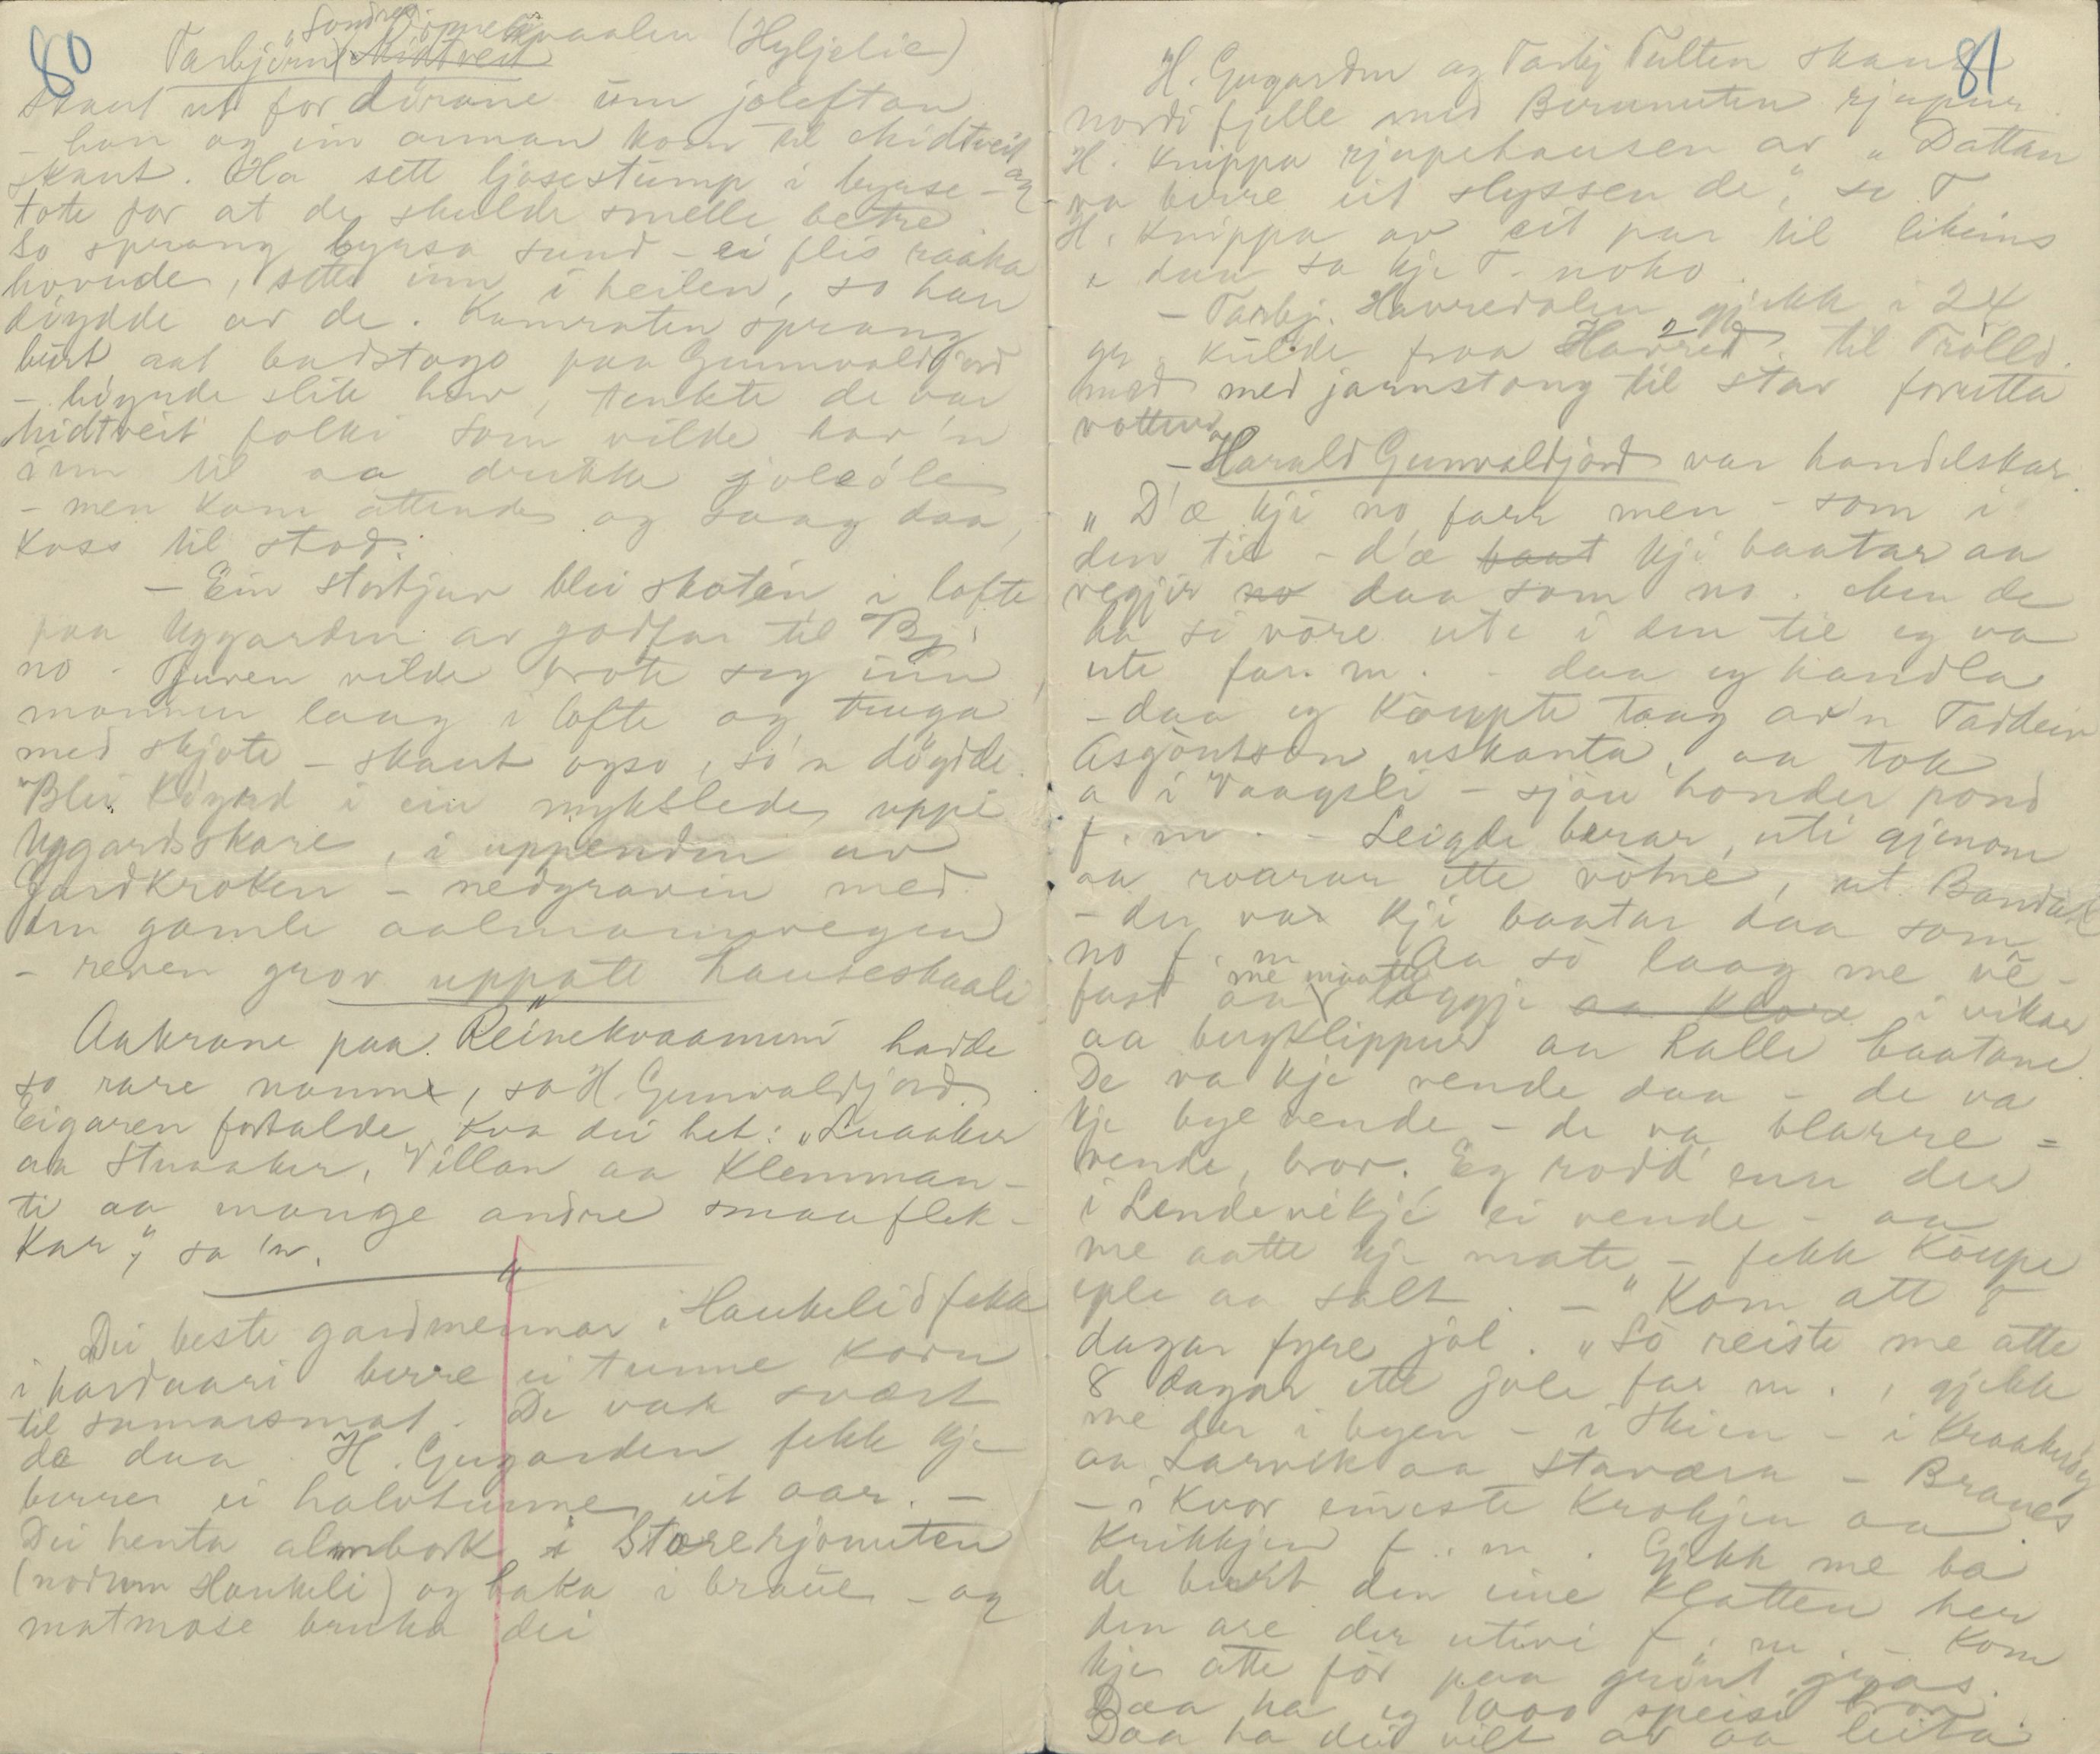 80
"Sondre
Tarbjørn Midtveit (Hyljelie)
skaut ut for dørane um joleftan
- han og ein annan kom til Midtveit
skaut. Ha sett ljosestump i byrse - og
tote for at de skulde smelle betre.
So sprang byrsa sund - ei flis raaka
hovude, sette inn i heilen, so han
døydde av de. Kamraten sprang
burt aat badstogo paa Gunnvaldjord
- bigynde slite haar, tenkte de var
Midtveit folki som vilde hav'n
inn til aa drikke joleøle
- men kom attende og saag daa,
koss til stod.
- Ein storhjuv blei skoten i lofte
paa Uggarden av godfar til Bj.
no. Tjuven vilde brote seg inn,
mannen laag i lofte og truga
med skjote - skaut ogso, so'n døydde.
Blei køyrd i ein mykslede uppi
Uggardsskare, i uppenden av
Gardkroken - nedgraven med
den gamle aalmannvegen
- reven grov uppatt hauseskaali
Aakrane paa Reinekvaamini hadde
so rare namne, sa H. Gunvaldjord.
Eigaren fortalde kva dei het: "Snaaker
aa Stuaaker, Villan aa Klemman-
ti aa mange andre smaaflek-
kar," sa 'n.
Dei beste gardmennar i Haukelid fekk
i hardaari berre ei tunne korn
til sumarsmat. De var svært
de daa. H. Gugarden fekk kje
berre ei halvtunne eit aar. -
Dei henta almbork i Storerjonuten
(nordum Haukeli) og baka i braue - og
matmose bruka dei
81
H. Gugarden og Tarbj Tulten skaut
nordi fjelle med Berunuten rjupur.
H. knippa rjupehausen av "Dattan
va berre eit slyssen de", sa T.
H. knippa av eit par til likeins
e daa sa kje T. noko.
- Tarbj. Havredalen gjekk i 24
gr. kulde fraa Havred. til Trølld.
med med jarnstong til stav forutta
vottur
- Harald Gunvaldjord var handelskar.
"D'æ kji no farr men - som i
den tie - d'æ kji baatar aa
regjer daa som no. Men de
ha si vore ute i den tie eg va
ute far. m. - daa eg handla
- daa eg køupte taag av'n Taddein
Asgøutson uskanta, aa tok
a i Vaagsli - sjøu honder pond
f. m. - Leigde berar, uti gjenom
aa roarar ette votne, ut Bandak
- der var kji baatar daa som
no f. m. Aa so laag me vê-
fast aa me maatte loggje aa klore i vikar
aa bergklippur aa halle baatane.
De va kje vende daa - de va
kje bye vende - de va blarre -
vende, bror. Eg rodd' enn der
i Lendevikje ei vende - aa
me aatte kje mate - fekk køupe
eple aa salt. - "Kom att 8
dagar fyre jol. "So reiste me atte
8 dagar ette jole far m., gjekk
me der i byen - i Skien - i Kraakerøy
aa Larvik aa Staværa - Branes
- i kvor eineste krokjen aa
krikkjen f. m. Gjekk me ba
de burt den eine klatten her
den are der utivi f. m. - Kom
kje atte før paa grønt gras.
Daa ha eg 1000 speisi bror.
Daa ha dei vilt av aa leita